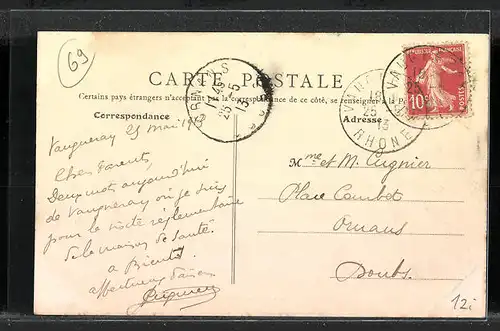 69
CARTE POSTALE
Certains pays étrangers n'acceptant pas la correspondance de ce côté, se renseigner à la P
Correspondance
Adresse
ORNANS
25-5
13
VAUG
18
25
13
RHONE
10
POSTES
Vaugneray 25 Mai 1913
Chers Parents,
Deux mots aujourd'hui
de Vaugneray où je suis
pour la visite réglementaire
de la maison de santé.
a Bientôt
affectueux baisers
Cuynier
Mme et M. Cugnier
Place Courbet
Ornans
Doubs
12i